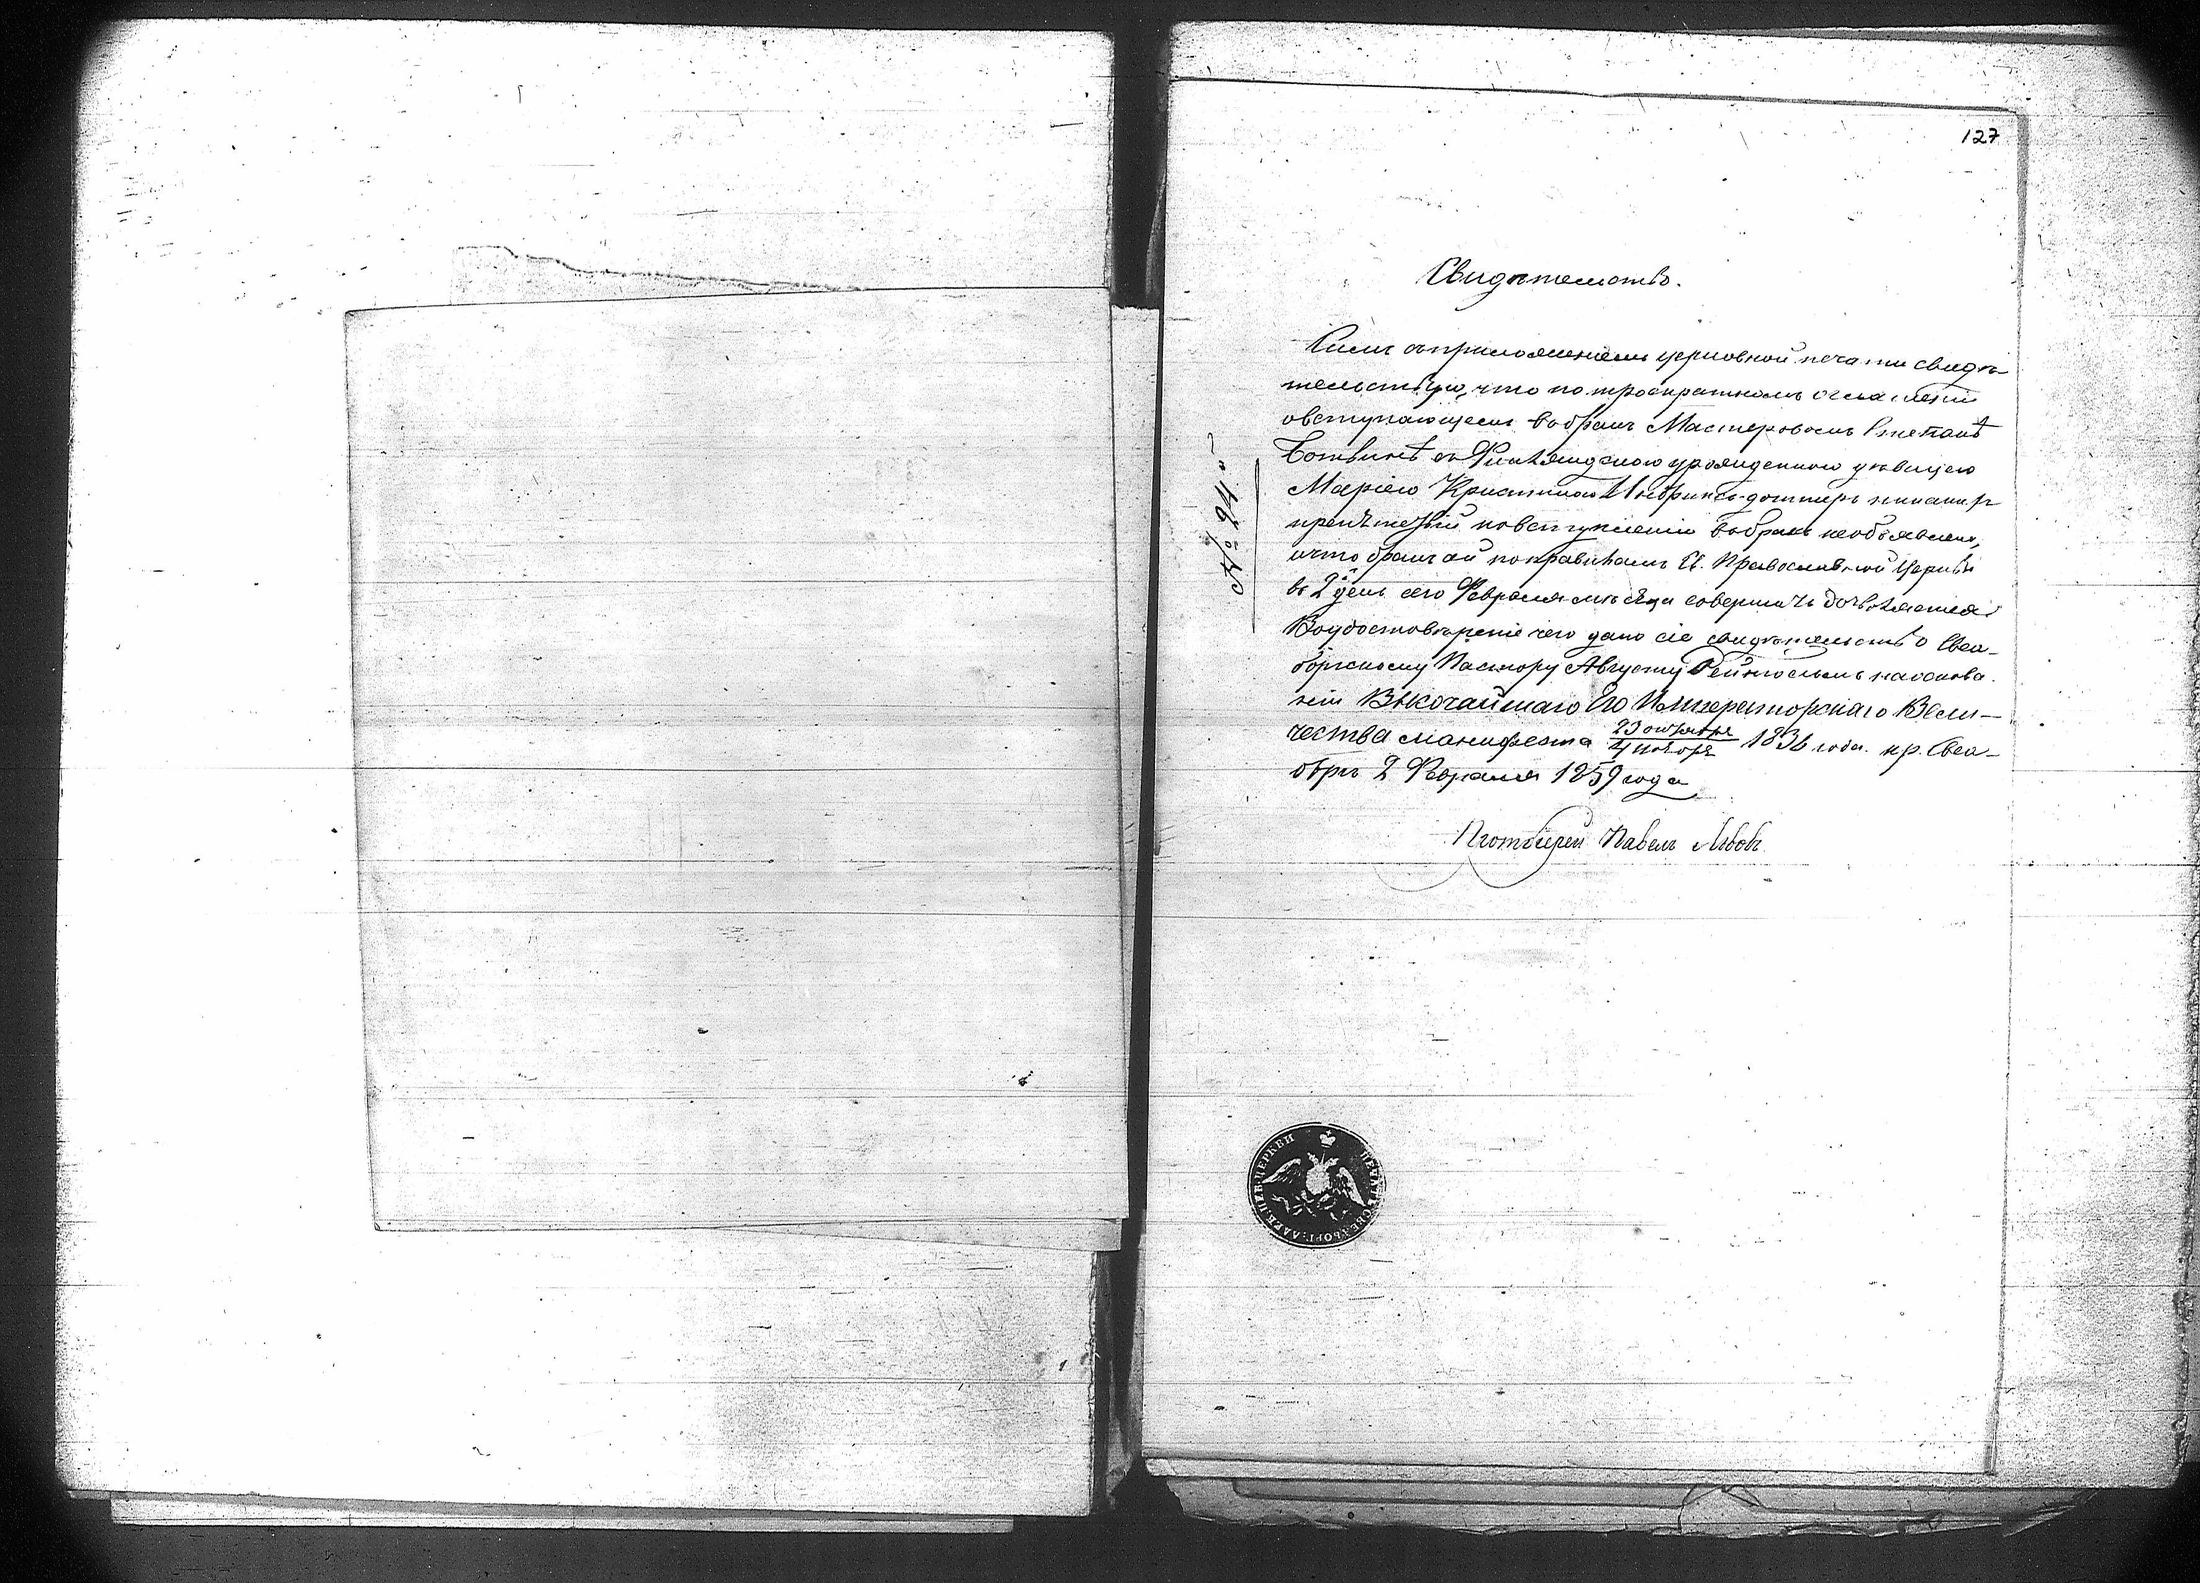 127
Свидѣтельство.
Симъ съприложеніемъ церковной печати свидѣ-
тельствую, что по троекратномъ огласкеніи
овступающемъ вобракъ Мастеровомъ Степанѣ
Ботвинѣ съ Финляндскою урожденною дѣвицею
Маріею Кристиною доттеръ никакихъ
препѣтствій повступленію вобракъ необъявлено,
ичто бракъ ей поправиламъ Св. Православной Церкви
въ 2й день сего Февраля мѣсяца совершить дозволяется
Воудостовѣреніе чего дано сіе свидѣтельство Свеа-
боргскому Пастору Августу наоснова-
ніи Высочайшаго Его Императорскаго Вели-
чества манифеста 23 октября / 4 ноября 183 года. кр. Свеа-
боргъ 2 Февраля 1859 года
Протоіерей Павелъ Львовъ
№ 94й
ПЕЧАТЬ СВЕАБОРГ: АЛЕК: НЕВ: ЦЕРКВИ